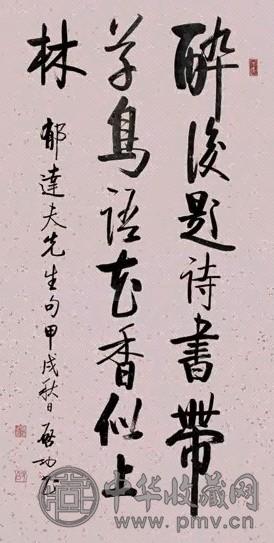 醉後題詩書帶
草鳥語花香似上
林
郁達夫先生句甲戌秋日啟功
中华收藏网
www.pmv.cn